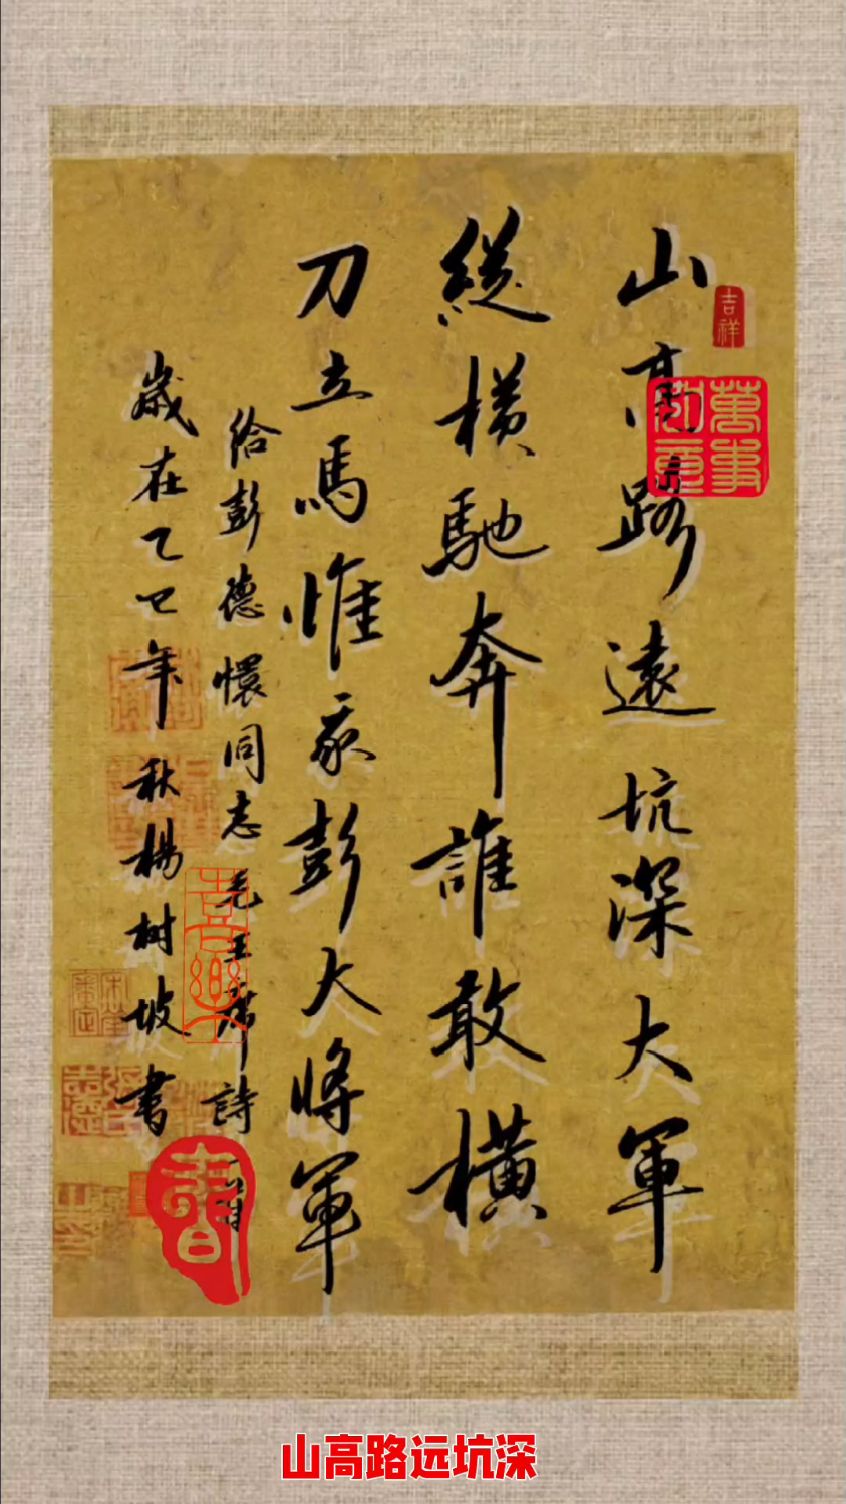 山高路遠坑深大軍
吉祥
萬事如意
縱橫馳奔誰敢橫
刀立馬惟我彭大將軍
給彭德懷同志毛主席詩一首
喜樂
歲在乙巳年秋楊树坡書
山高路远坑深